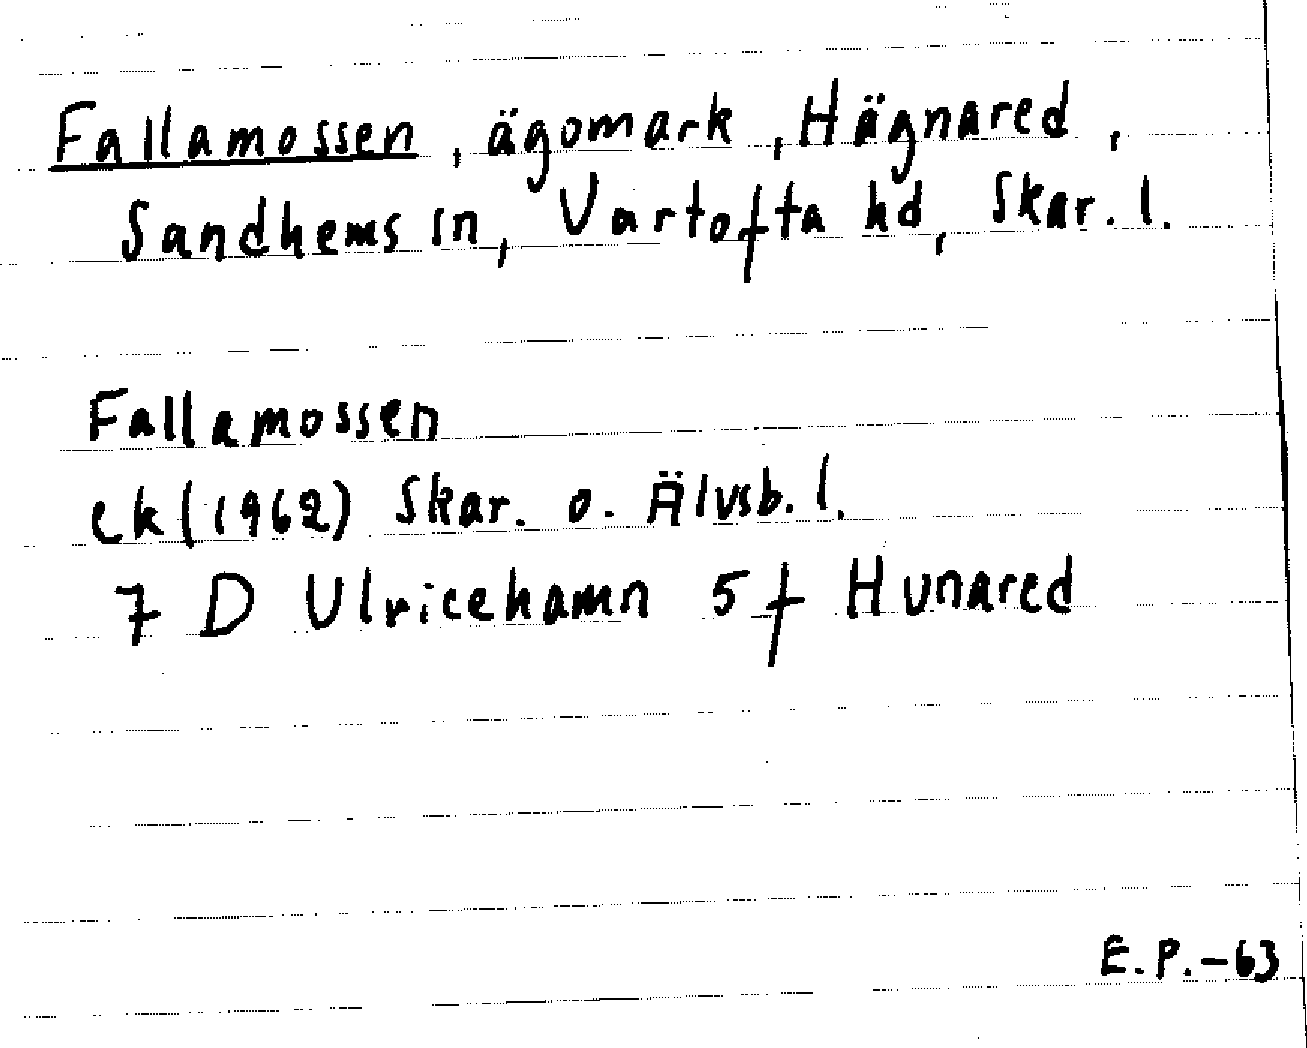 Fallamossen, ägomark, Hägnared,
Sandhems sn, Vartofta hd, Skar. l.
Fallamossen
ek (1962) Skar. o. Älvsb. l.
7 D Ulricehamn 5 f Hunared
E.P.-63